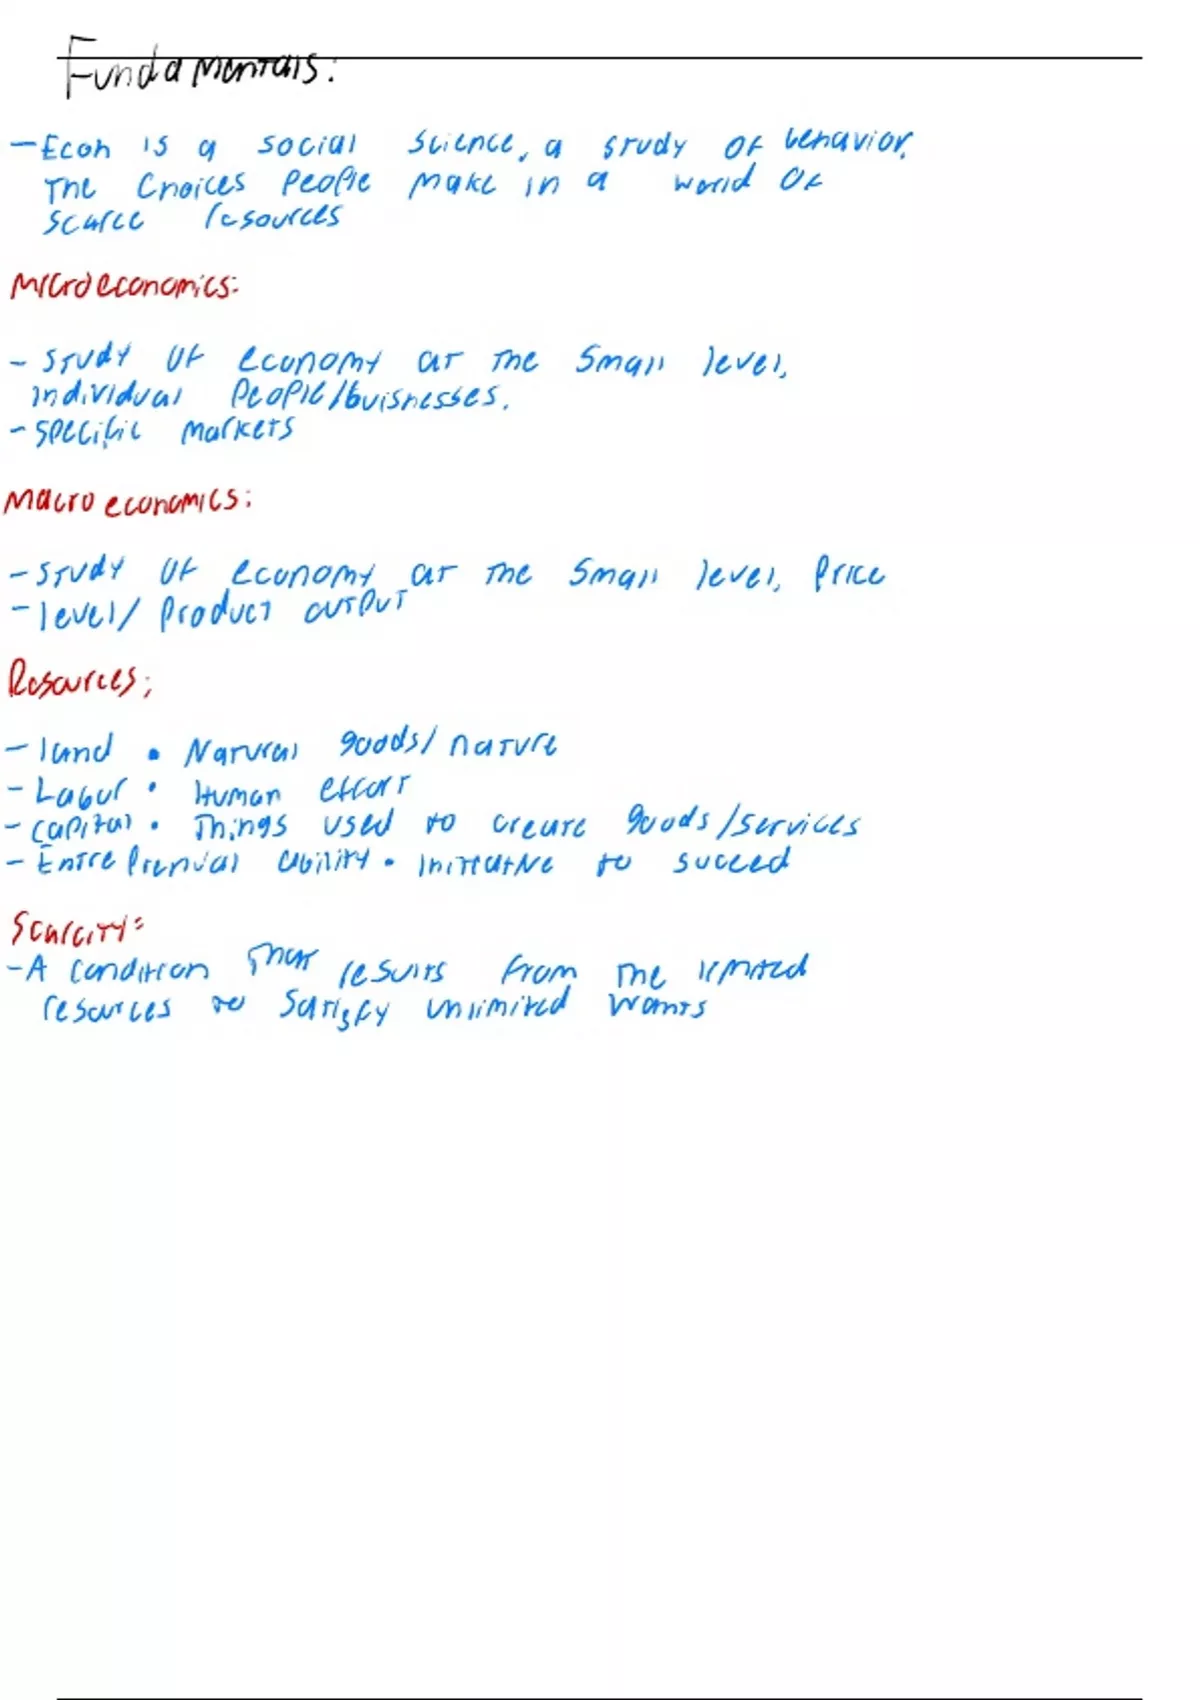 Fundamentals:
- Econ is a social science, a study of behavior.
The choices people make in a world of
scarce resources
Microeconomics:
- study of economy at the small level,
individual people/buisnesses.
- specific markets
Macroeconomics:
- study of economy at the small level, price
- level/product output
Resources;
- land • Natural goods/nature
- Labor • Human effort
- capital • Things used to create goods/services
- Entreprenual ability • initiative to succeed
Scarcity:
- A condition that results from the limited
resources to satisfy unlimited wants